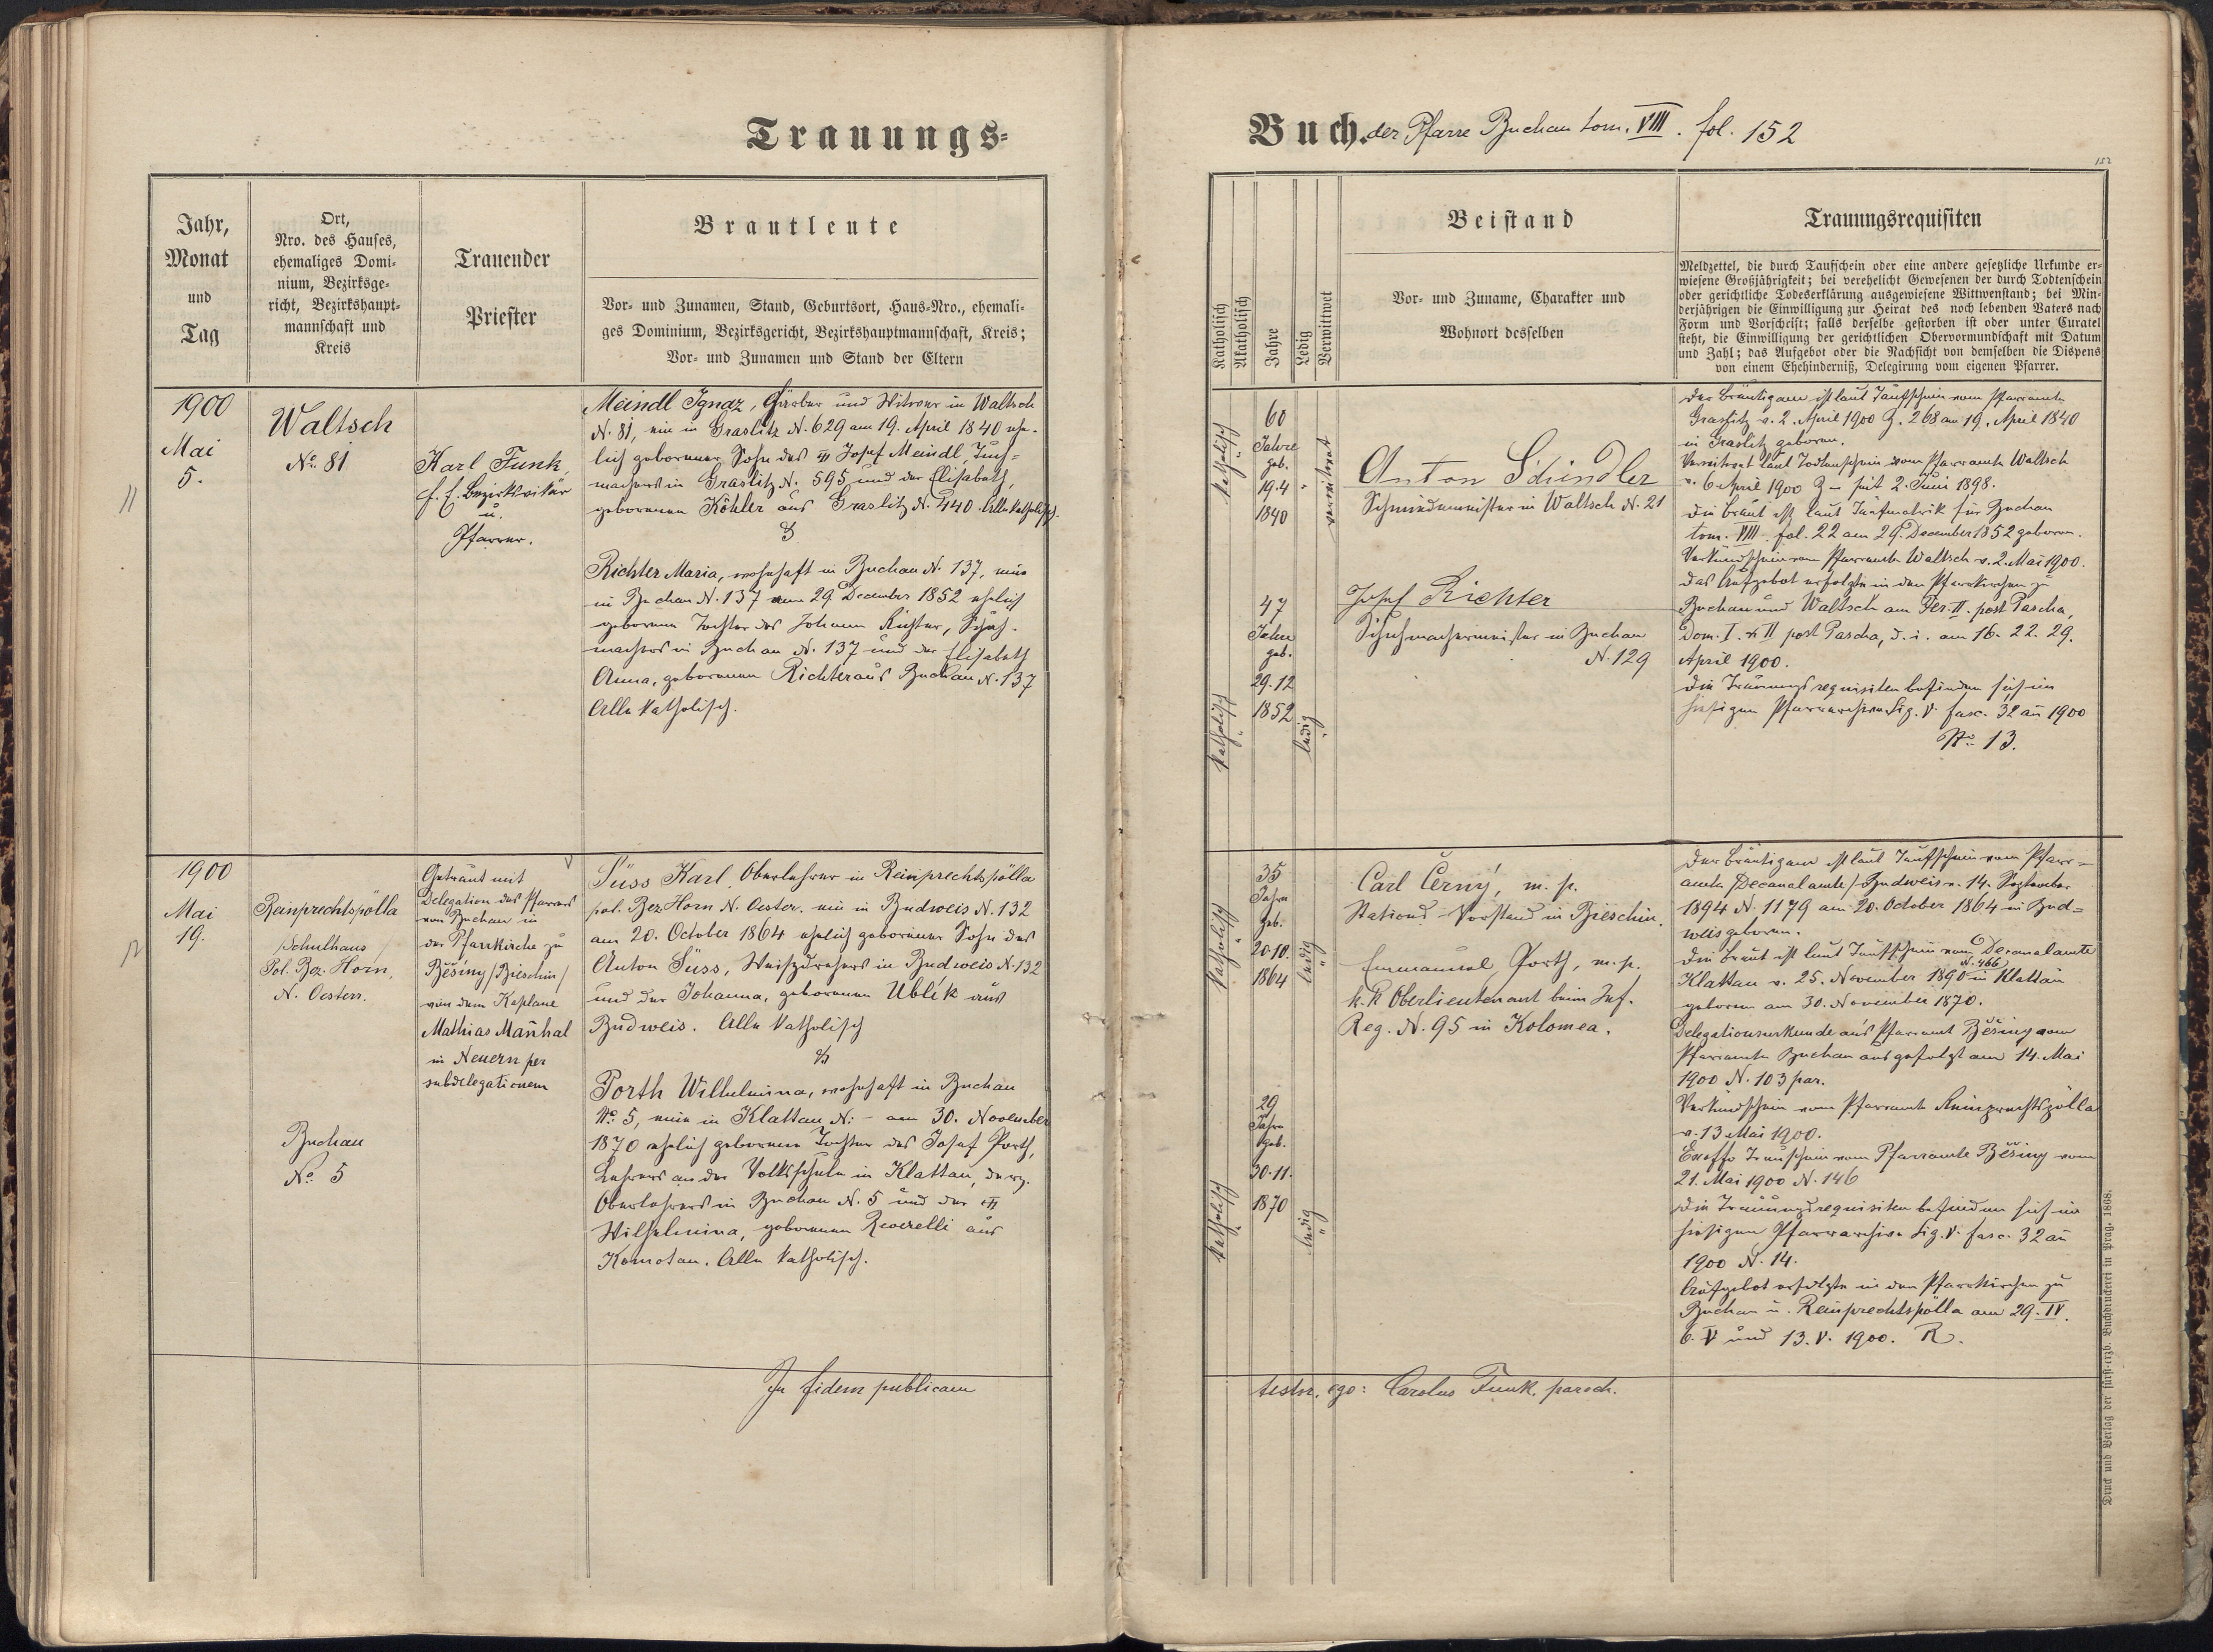 Trauungs-
Buch. der Pfarre Buchau tom. VIII. fol. 152
152
Jahr,
Monat
und
Tag
Ort,
Nro. des Hauses,
ehemaliges Domi-
nium, Bezirksge-
richt, Bezirkshaupt-
mannschaft und
Kreis
Trauender
Priester
Brautleute
Vor- und Zunamen, Stand, Geburtsort, Haus-Nro., ehemali-
ges Dominium, Bezirksgericht, Bezirkshauptmannschaft, Kreis;
Vor- und Zunamen und Stand der Eltern
Katholisch
Akatholisch
Jahre
Ledig
Verwittwet
Beistand
Vor- und Zuname, Charakter und
Wohnort desselben
Trauungsrequisiten
Meldzettel, die durch Taufschein oder eine andere gesetzliche Urkunde er-
wiesene Großjährigkeit; bei verehelicht Gewesenen der durch Todtenschein
oder gerichtliche Todeserklärung ausgewiesene Wittwenstand; bei Min-
derjährigen die Einwilligung zur Heirat des noch lebenden Vaters nach
Form und Vorschrift; falls derselbe gestorben ist oder unter Curatel
steht, die Einwilligung der gerichtlichen Obervormundschaft mit Datum
und Zahl; das Aufgebot oder die Nachsicht von demselben die Dispens
von einem Ehehinderniß, Delegirung vom eigenen Pfarrer.
11
1900
Mai
5.
Waltsch
No. 81
Karl Funk,
f. e. Bezirksvikär
u.
Pfarrer.
Meindl Ignaz, Gärber und Witwer in Waltsch
N. 81, ein in Graslitz N. 629 am 19. April 1840 ehe-
lich geborener Sohn des Josef Meindl, Tuch-
machers in Graslitz N. 595 und der Elisabeth,
geborenen Köhler aus Graslitz N. 440. Alle katholisch.
&
Richter Maria, wohnhaft in Buchau N. 137, eine
in Buchau N. 137 am 29. December 1852 ehelich
geborene Tochter des Johann Richter, Schuh-
machers in Buchau N. 137 und der Elisabeth
Anna, geborenen Richter aus Buchau N. 137
Alle katholisch.
katholisch
60
Jahre
geb.
19.4
1840
verwitwet
Anton Schindler
Schmiedemeister in Waltsch N. 21
katholisch
47
Jahre
geb.
29.12
1852
ledig
Josef Richter
Schuhmachermeister in Buchau
N. 129
Der Bräutigam ist laut Taufschein vom Pfarramte
Graslitz v. 2. April 1900 Z. 268 am 19. April 1840
in Graslitz geboren.
Verwitwet laut Todtenschein vom Pfarramte Waltsch
v. 6 April 1900 Z – seit 2. Juni 1898.
Die Braut ist laut Taufmatrik für Buchau
tom. VIII. fol. 22 am 29. December 1852 geboren.
Verkündschein vom Pfarramte Waltsch v. 2. Mai 1900.
Das Aufgebot erfolgte in den Pfarrkirchen zu
Buchau und Waltsch am Fer. II. post Pascha,
Dom. I. & II post Pascha, d. i. am 16. 22. 29.
April 1900.
Die Trauungsrequisiten befinden sich im
hiesigen Pfarrarchive Sig. V. fasc. 32 an 1900
No. 13.
12
1900
Mai
19.
Reinprechtspölla
/Schulhaus/
Pol. Bez. Horn,
N. Oesterr.
Buchau
No. 5
Getraut mit
Delegation des Pfarrers
von Buchau in
der Pfarrkirche zu
Běšiny /Bieschin/
von dem Kaplane
Mathias Maňhal
in Neuern per
subdelegationem
Süss Karl, Oberlehrer in Reinprechtspölla
pol. Bez. Horn N. Oester. ein in Budweis N. 132
am 20. October 1864 ehelich geborener Sohn des
Anton Süss, in Budweis N. 132
und der Johanna, geborenen Ublik aus
Budweis. Alle katholisch
&
Porth Wilhelmina, wohnhaft in Buchau
No. 5, eine in Klattau N: – am 30. November
1870 ehelich geborene Tochter des Josef Porth,
Lehrers an der Volksschule in Klattau, derz.
Oberlehrers in Buchau N. 5 und der
Wilhelmina, geborenen Reverelli aus
Komotau. Alle katholisch.
katholisch
35
Jahre
geb.
20.10.
1864
ledig
Carl Černý, m. p.
Stations-Vorstand in Bieschin.
Emmanuel Porth, m. p.
k. k. Oberlieutenant beim Inf.
Reg. N. 95 in Kolomea.
katholisch
29
Jahre
geb.
30.11.
1870
ledig
Der Bräutigam ist laut Taufschein vom Pfarr-
amte /Decanalamte/ Budweis v. 14. September
1894 N. 1179 am 20. October 1864 in Bud-
weis geboren.
Die Braut ist laut Taufschein vom Decanalamte
N. 466
Klattau v. 25. November 1890 in Klattau
geboren am 30. November 1870.
Delegationsurkunde ans Pfarramt Běšiny vom
Pfarramte Buchau ausgefolgt am 14. Mai
1900 N. 103 par.
Verkündschein vom Pfarramte Reinprechtspölla
v. 13 Mai 1900.
Exoffo Trauschein vom Pfarramte Běšiny vom
21. Mai 1900 N. 146
Die Trauungsrequisiten befinden sich im
hiesigen Pfarrarchive Sig. V. fasc. 32 an
1900 N. 14.
Aufgebot erfolgte in den Pfarrkirchen zu
Buchau u. Reinprechtspölla am 29. IV.
6. V und 13. V. 1900. R.
In fidem publicam
testor, ego: Carolus Funk, paroch.
Druck und Verlag der fürst-erzb. Buchdruckerei in Prag. 1868.